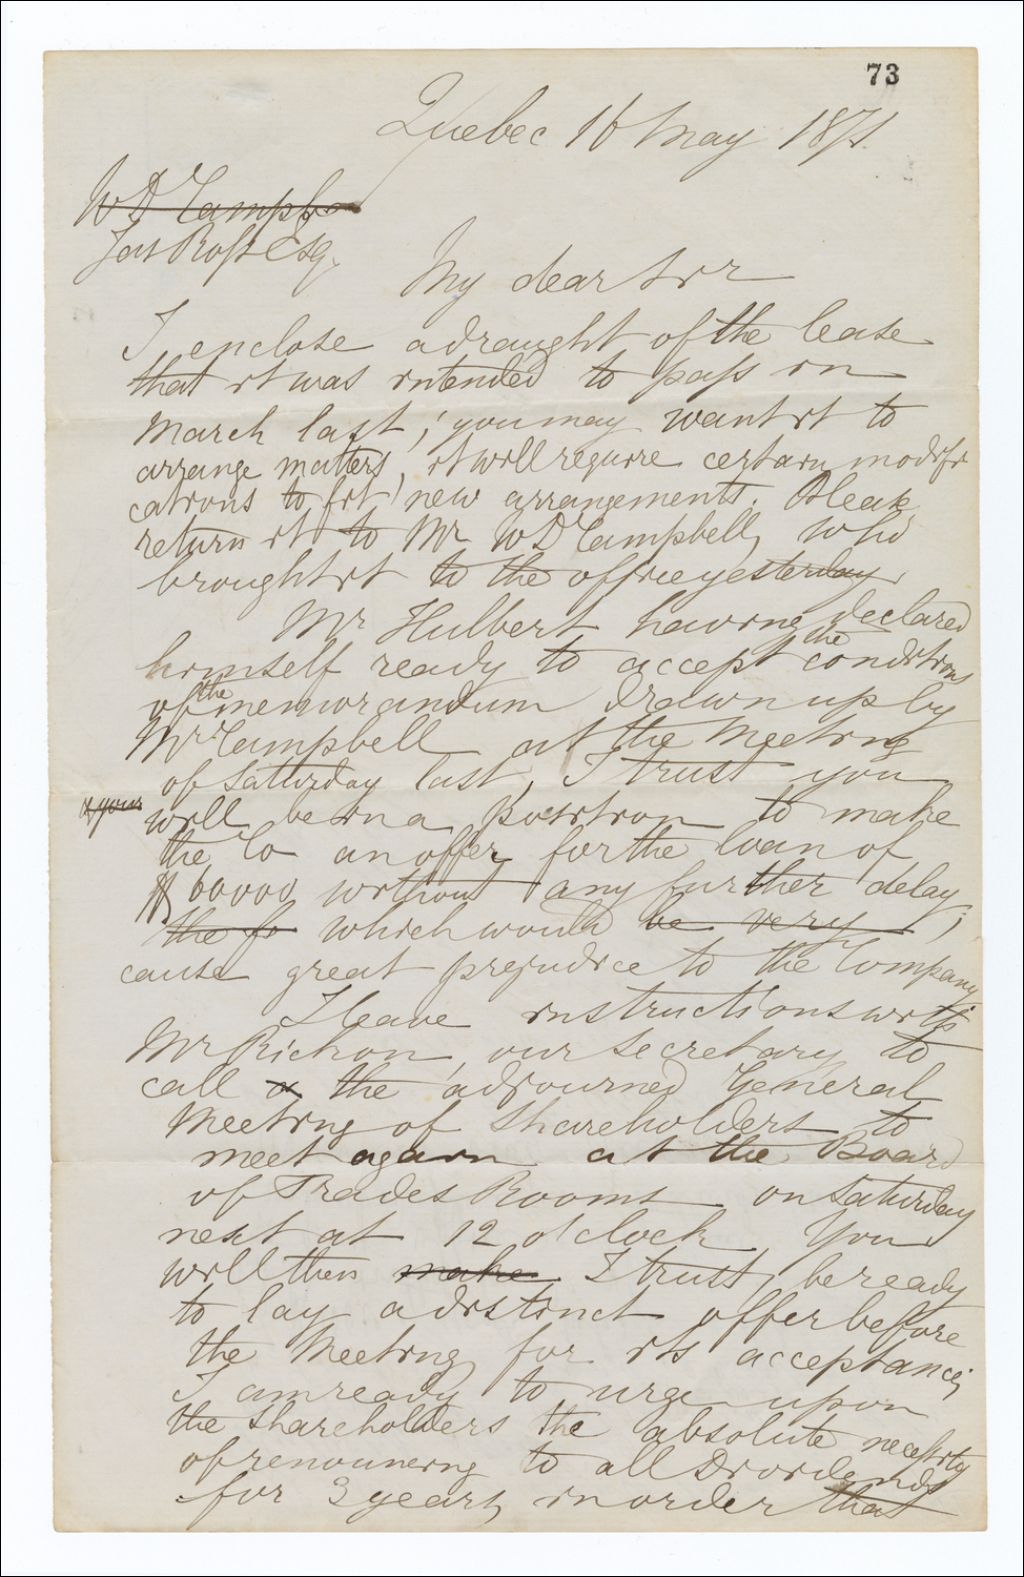 73
Quebec 16 May 1871.
W D Campbe
Jas Ross Esq.
My dear Sir
I enclose a draught of the lease
that it was intended to pass in
March last; you may want it to
arrange matters, it will require certain modifi
cations to fit new arrangements. Please
return it to Mr W D Campbell, who
brought it to the office yesterday.
Mr Hulbert having declared
himself ready to accept the conditions
of the memorandum drawn up by
Mr Campbell at the Meeting
of Saturday last, I trust you
& your will be in a position to make
the Co an offer for the loan of
$60000 without any further delay,
the fo which would be very
cause great prejudice to the Company
I leave instructions with
Mr Richon, our secretary, to
call a the adjourned General
Meeting of Shareholders to
meet again at the Board
of Trades Rooms on Saturday
next at 12 o'clock You
will then make I trust, be ready
to lay a distinct offer beffore
the Meeting for its acceptance;
I am ready to urge upon
the shareholders the absolute necessity
of renouncing to all Dividends
for 3 years, in order that